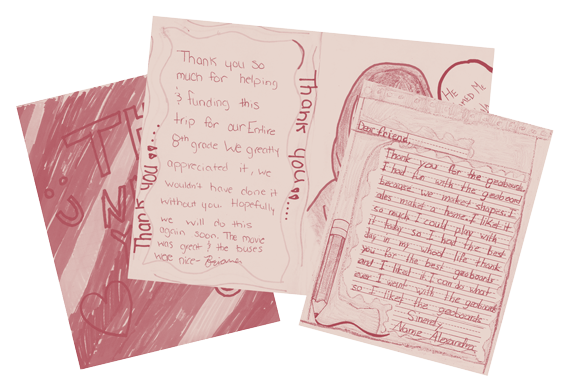 TH
Thank you
Thank you so
much for helping
& funding this
trip for our Entire
8th grade We greatly
appreciated it, we
wouldn't have done it
without you. Hopefully
we will do this
again soon. The move
was great & the buses
were nice-
Thank you
HE
ME
Dear friend,
Thank you for the geoboards
I had fun with the geoboard
because we maket shapes I
ales maket a home. I liket it
so much I could play with
it today so I had the best
day in my whool life thank
you for the best geoboards
and I liket it I can do what
ever I want with The geoboard
so I liket the geoboards
Sincerely,
Name Alexandria